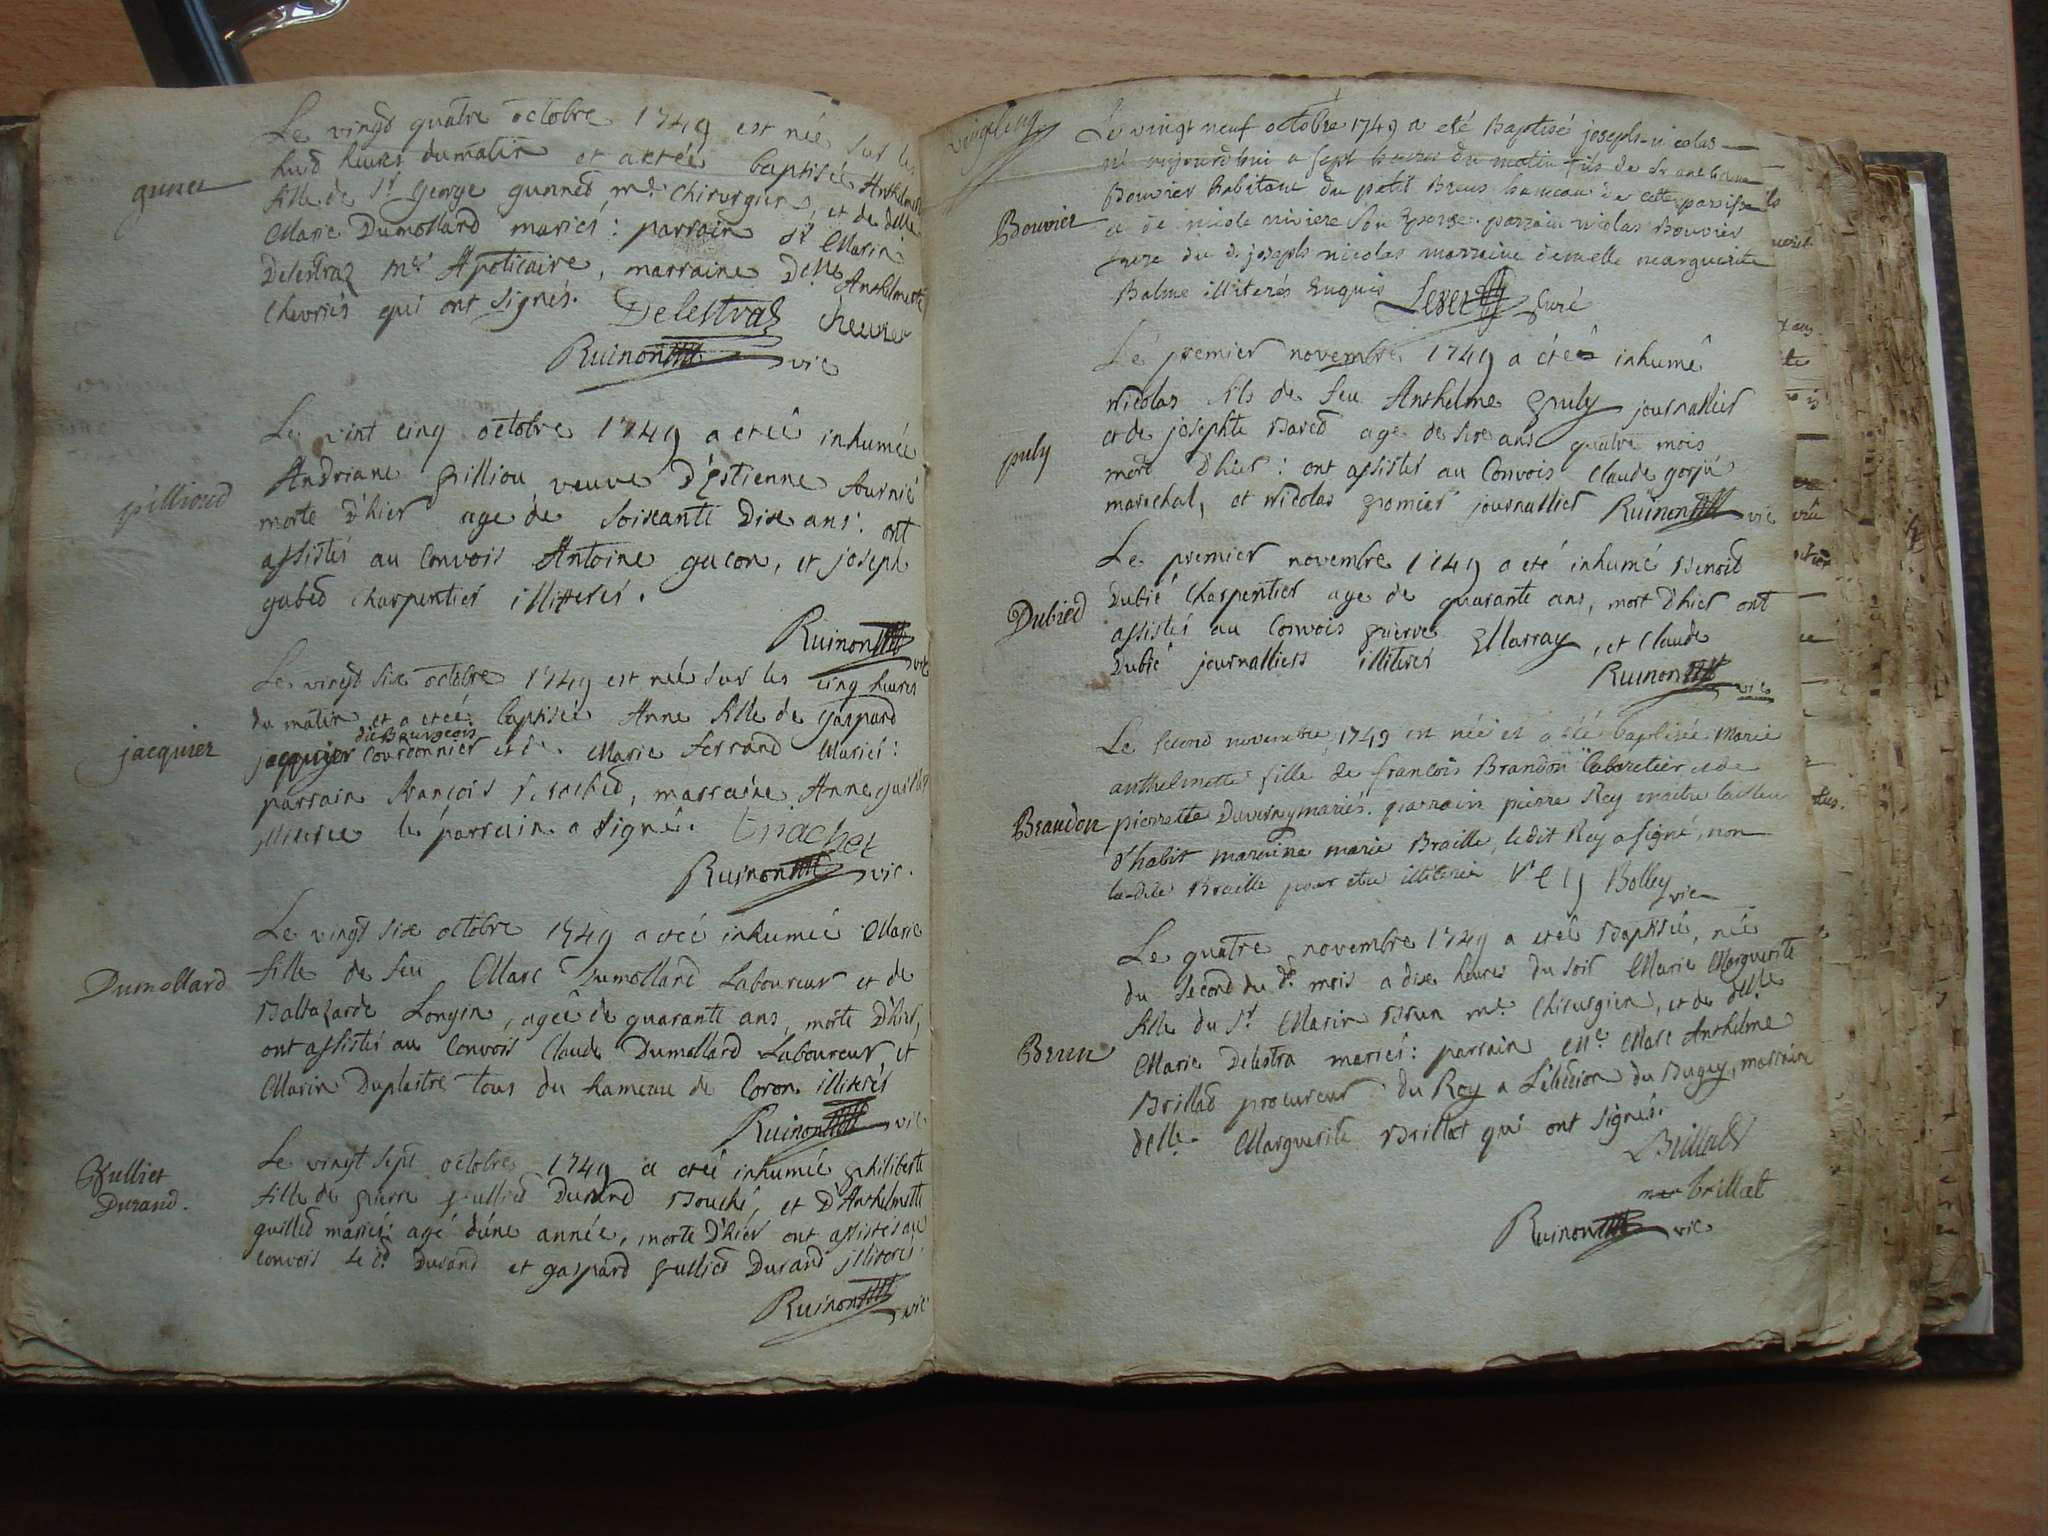 gunet
Le vingt quatre octobre 1749 est née sur les
huid heures du matin et a etéé baptisée Anthelmette
fille de Sr George gunned, me. Chirurgien, et de delle
Marie Dumollard mariés: parrain Sr Marin
Delestraz me Apoticaire, marraine Delle Anthelmette
Chevriés qui ont signés. Delestraz Cheurier
Ruinon vic
pillioud
Le vint cinq octobre 1749 a etéé inhumée
Andriane pilliou veuve d'Estienne fournié
morte d'hier age de soixante dix ans: ont
assistés au Convois Antoine gucon, et joseph
gubed charpentier illitterés.
Ruinon vic
jacquier
Le vingt six octobre 1749 est née sur les cinq heures
du matin et a etéé baptisée Anne fille de gaspard
dit Bourgeois
jacquier Courdonnier et de Marie ferrand Mariés:
parrain françois, marraine Anne
le parrain a signé. trachet
Ruinon vic.
Dumollard
Le vingt six octobre 1749 a etéé inhumée Marie
fille de feu Marc Dumollard Laboureur et de
Baltazarde Longin, agée de quarante ans, morte d'hier,
ont assistés au Convois Claude Dumollard Laboureur et
Marin Duplastre tous du hameau de Coron illiterés
Ruinon vic
Sulliet
Durand.
Le vingt sept octobre 1749 a etéé inhumée philiberte
fille de pierre Durand Bouché, et d'Anthelmette
guilled mariés: agé d'une année, morte d'hier ont assistés au
convois le d. Durand et gaspard Durand illiterés
Ruinon vic
Bouvier
Le vingt neuf octobre 1749 a eté Baptisé joseph-nicolas
né aujourdhui a sept heures du matin fils de Sr anthelme
Bouvier habitant du petit Brens hameau de cette paroisse
et de nicole riviere son Epouse. parrain nicolas Bouvier
frere du d. joseph nicolas marraine demelle marguerite
Balme illiterés Enquis Curé
puly
Le premier novembre 1749 a etéé inhumé
Nicolas fils de feu Anthelme puly journallier
et de josephte Bared age de sixe ans quatre mois
mord d'hier: ont assistés au Convois Claude gorju
marechal, et Nicolas promier journallier Ruinon vic
Dubied
Le premier novembre 1749 a eté inhumé Benoit
Dubié Charpentier age de quarante ans, mort d'hier ont
assistés au Convois pierre Marray, et Claude
Dubié journalliers illiterés Ruinon vic
Brandon
Le second novembre 1749 est née et a été baptisée Marie
anthelmette fille de françois Brandon Cabaretier et de
pierrette Duvernay mariés. parrain pierre Rey maitre tailleur
d'habit marraine marie Braille, ledit Rey a signé, non
la-dite Braille pour etre illiterée Rey Bolley vic
Brun
Le quatre novembre 1749 a etéé Baptisée, née
du second du d. mois a dix heures du soir Marie Marguerite
fille du Sr Marin Brun me. Chirurgien, et de delle
Marie Delestra mariés: parrain me. Marc Anthelme
Brillad procureur du Roy a L'élection du Bugey, marraine
delle. Marguerite Brillat qui ont signés.
Brillat
mar brillat
Ruinon vic